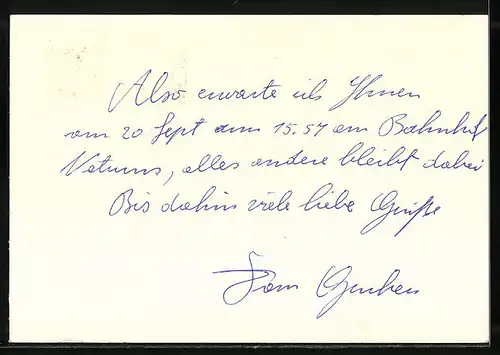 Also erwarte ich Ihnen
am 20 Sept um 15.57 am Bahnhof
Naturns, alles andere bleibt dabei
Bis dahin viele liebe Grüße